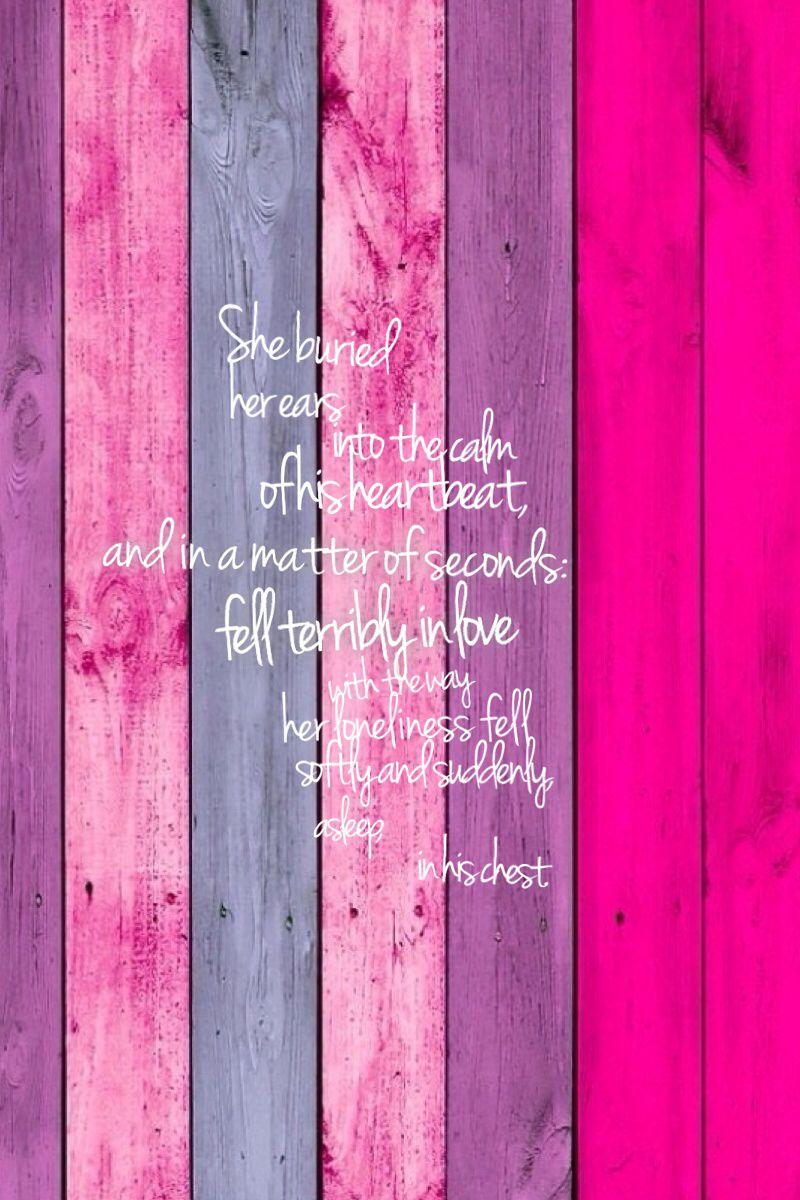 She buried
her ears
into the calm
of his heartbeat,
and in a matter of seconds:
fell terribly in love
with the way
her loneliness fell
softly and suddenly,
asleep,
in his chest.